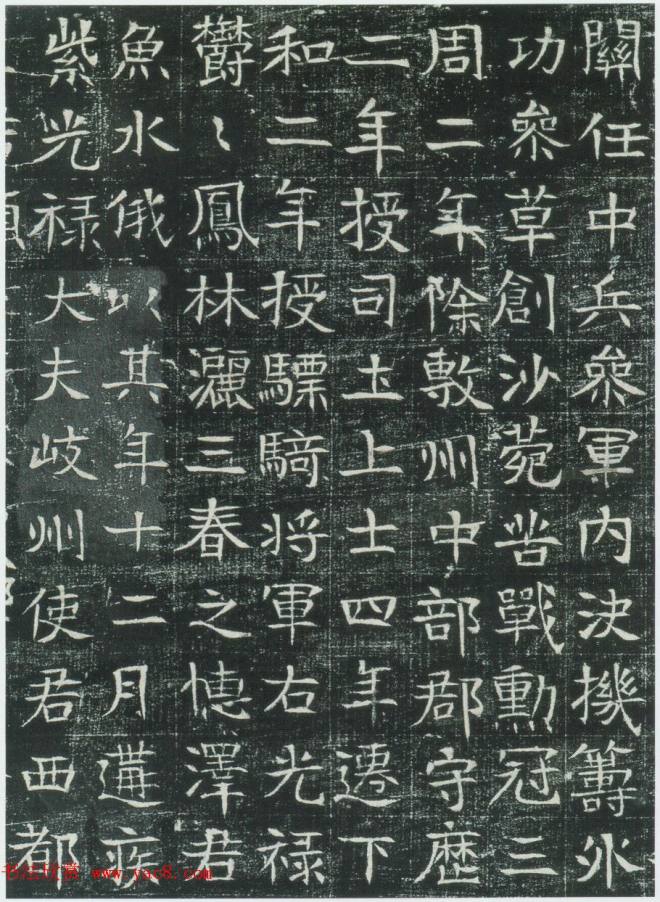 關任中兵叅軍内決機籌外
功叅草創沙菀苦戰勳冠三
周二年除敷州中部郡守歷
二年授司土上士四年遷下
和二年授驃騎将軍右光禄
欝〻鳳林灑三春之憓澤君
魚水俄以其年十二月遘疾
紫光禄大夫岐州使君西都
书法欣赏 www.yac8.com